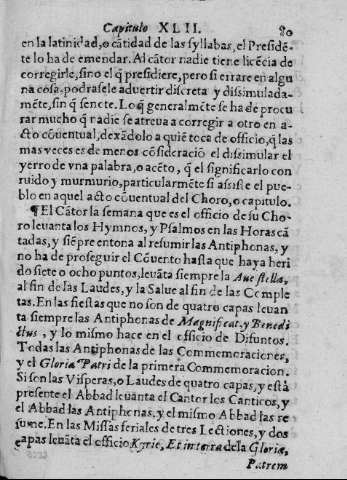 Capitulo XLII. 80
en la latinidad, o cãtidad de las syllabas, el Presidẽ-
te lo ha de emendar. Al cãtor nadie tiene licẽcia de
corregirle, sino el q̃ presidiere, pero si errare en algu
na cosa podrasele advertir discreta y dissimulada-
mẽte, sin q̃ sencte. Lo q̃ generalmẽte se ha de procu
rar mucho q̃ nadie se atreua a corregir a otro en a-
cto cõuentual, dexãdolo a quiẽ toca de officio, q̃ las
mas veces es de menos cõsideraciõ el dissimular el
yerro de vna palabra, o acẽto, q̃ el significarlo con
ruido y murmurio, particularmẽte si assiste el pue-
blo en aquel acto cõuentual del Choro, o capitulo.
¶ El Cãtor la semana que es el officio de su Cho-
ro leuanta los Hymnos, y Psalmos en las Horas cã
tadas, y siẽpre entona al resumir las Antiphonas, y
no ha de proseguir el Cõuento hasta que haya heri
do siete o ocho puntos, leuãta siempre la Aue stella,
al fin de las Laudes, y la Salue al fin de las Comple
tas. En las fiestas que no son de quatro capas leuan
ta siempre las Antiphonas de Magnificat, y Benedi
ctus, y lo mismo hace en el officio de Difuntos.
Todas las Antiphonas de las Commemoraciones,
y el Gloria Patri de la primera Commemoracion.
Si son las Visperas, o Laudes de quatro capas, y està
presente el Abbad leuanta el Cantor los Canticos, y
el Abbad las Antiphonas, y el mismo Abbad las re
sume. En las Missas feriales de tres Lectiones, y dos
capas leuãta el officio Kyrie, Et in terra de la Gloria,
Patrem